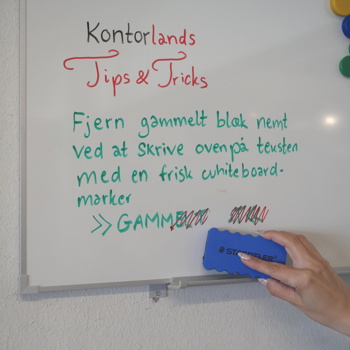 Kontorlands
Tips & Tricks
Fjern gammelt blæk nemt
ved at skrive ovenpå teksten
med en frisk whiteboard-
marker
>> GAMME
STAEDTLER